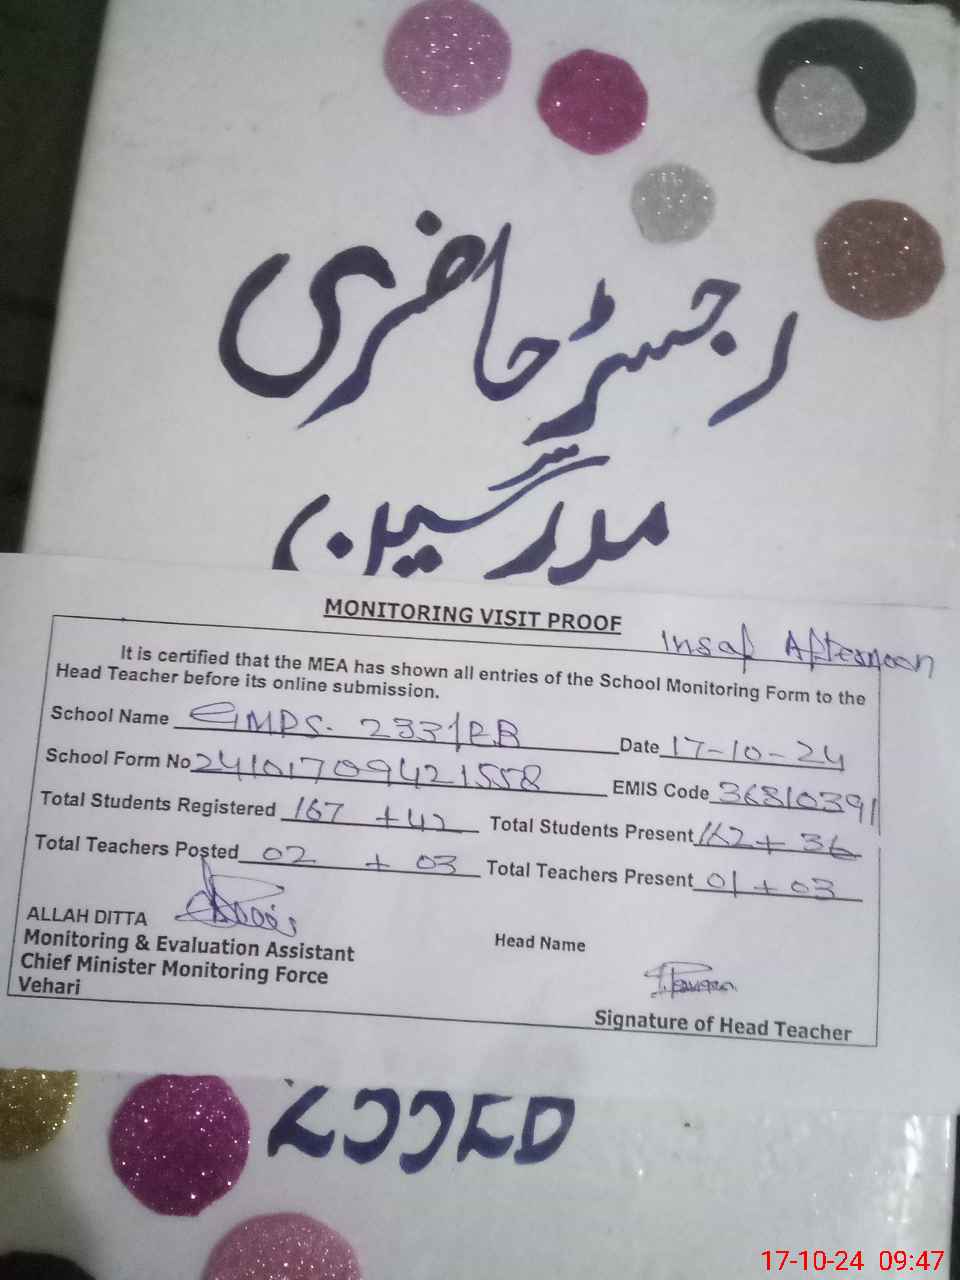 رجسٹر حاضری
مدرسین
MONITORING VISIT PROOF
Insaf Afternoon
It is certified that the MEA has shown all entries of the School Monitoring Form to the
Head Teacher before its online submission.
School Name GMPS. 233/EB Date 17-10-24
School Form No 241017094421558 EMIS Code 36810391
Total Students Registered 167 +42 Total Students Present 162+ 36
Total Teachers Posted 02 + 03 Total Teachers Present 01 + 03
ALLAH DITTA
Monitoring & Evaluation Assistant
Chief Minister Monitoring Force
Vehari
Head Name
Signature of Head Teacher
17-10-24 09:47